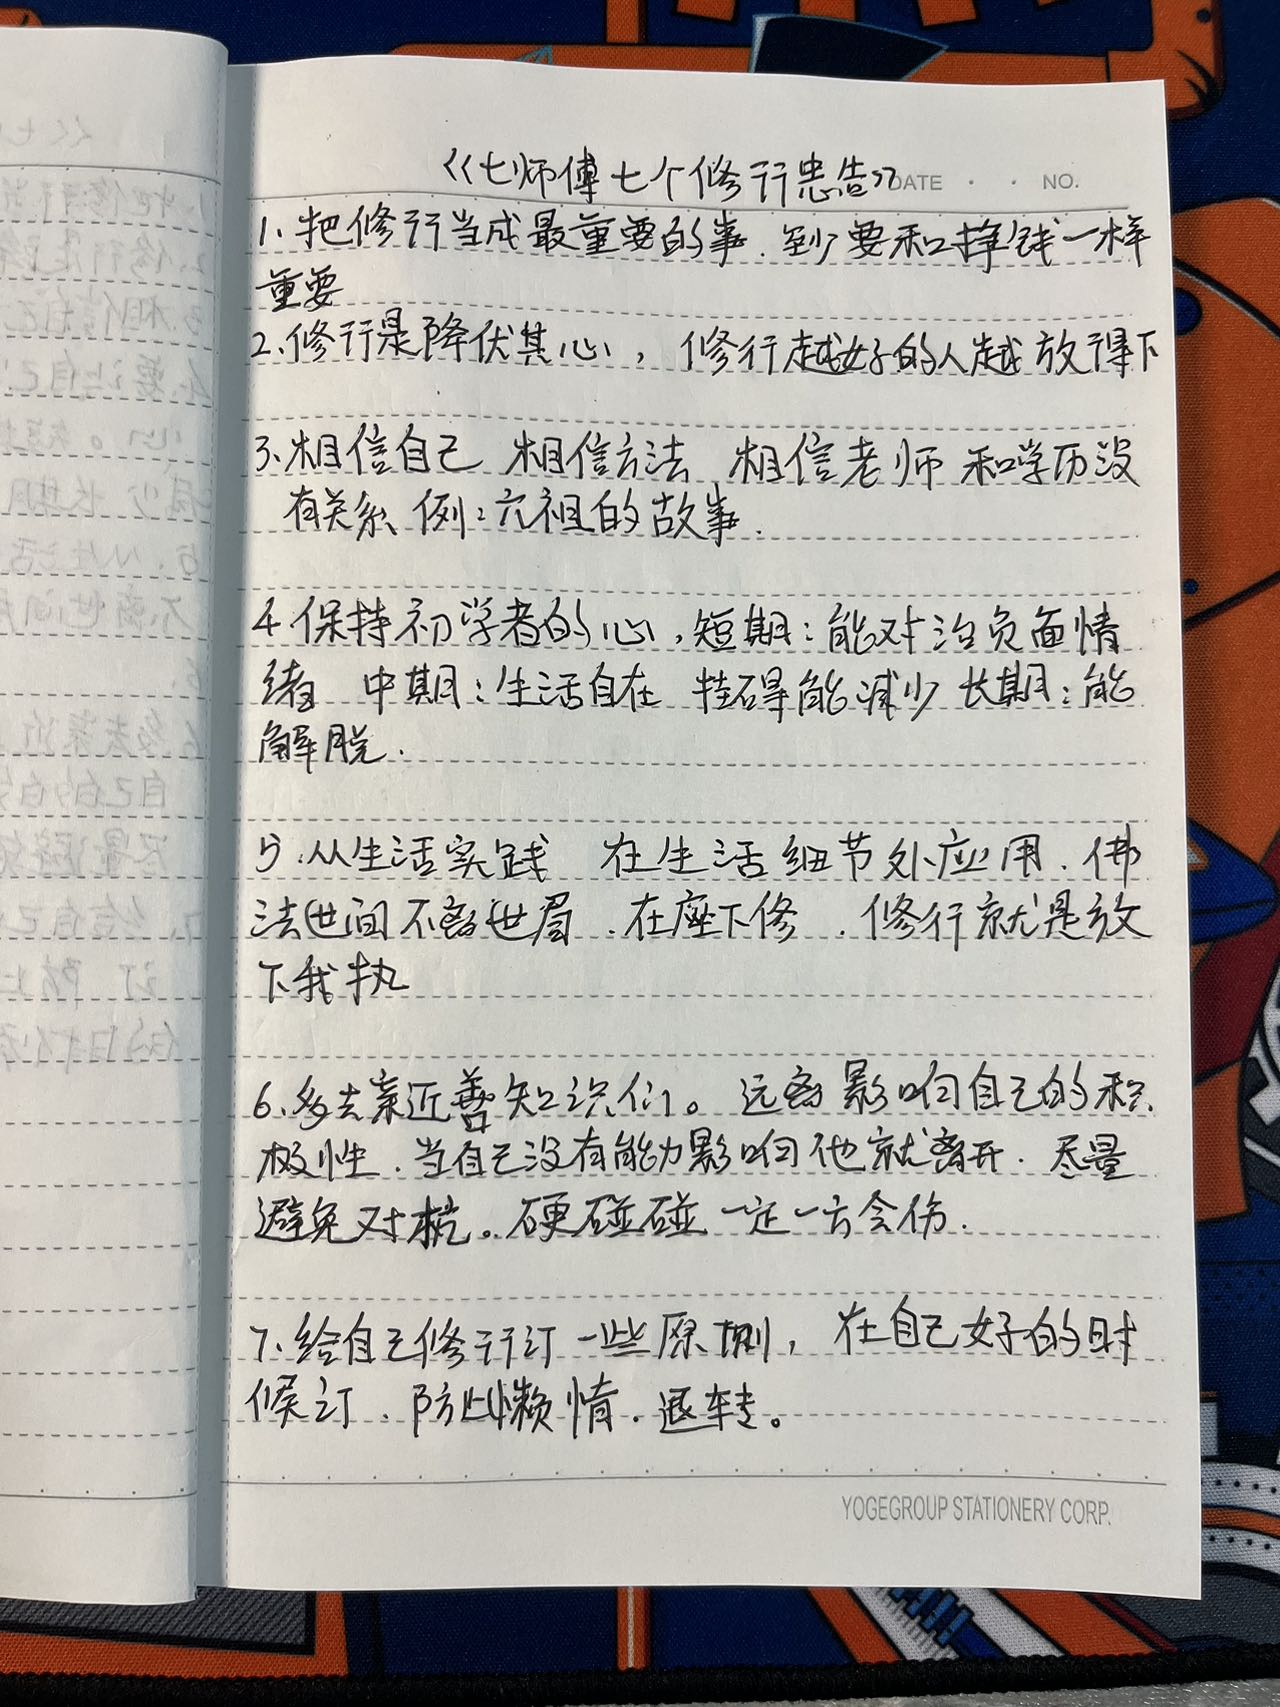 《七师傅七个修行忠告》
DATE · · NO.
1、把修行当成最重要的事.到少要和挣钱一样
重要
2、修行是降伏其心，修行越好的人越放得下
3、相信自己 相信方法 相信老师 和学历没
有关系 例：六祖的故事.
4.保持初学者的心，短期：能对治负面情
绪 中期：生活自在 挂碍能减少 长期：能
解脱.
5.从生活实践 在生活细节处应用.佛
法世间不离世 .在座下修.修行就是放
下我执
6、多去亲近善知识们。远离影响自己的积
极性.当自己没有能力影响他就离开.尽量
避免对抗。硬碰碰一定一方会伤.
7、给自己修行订一些原则，在自己好的时
候订.防止懒惰.退转。
YOGEGROUP STATIONERY CORP.